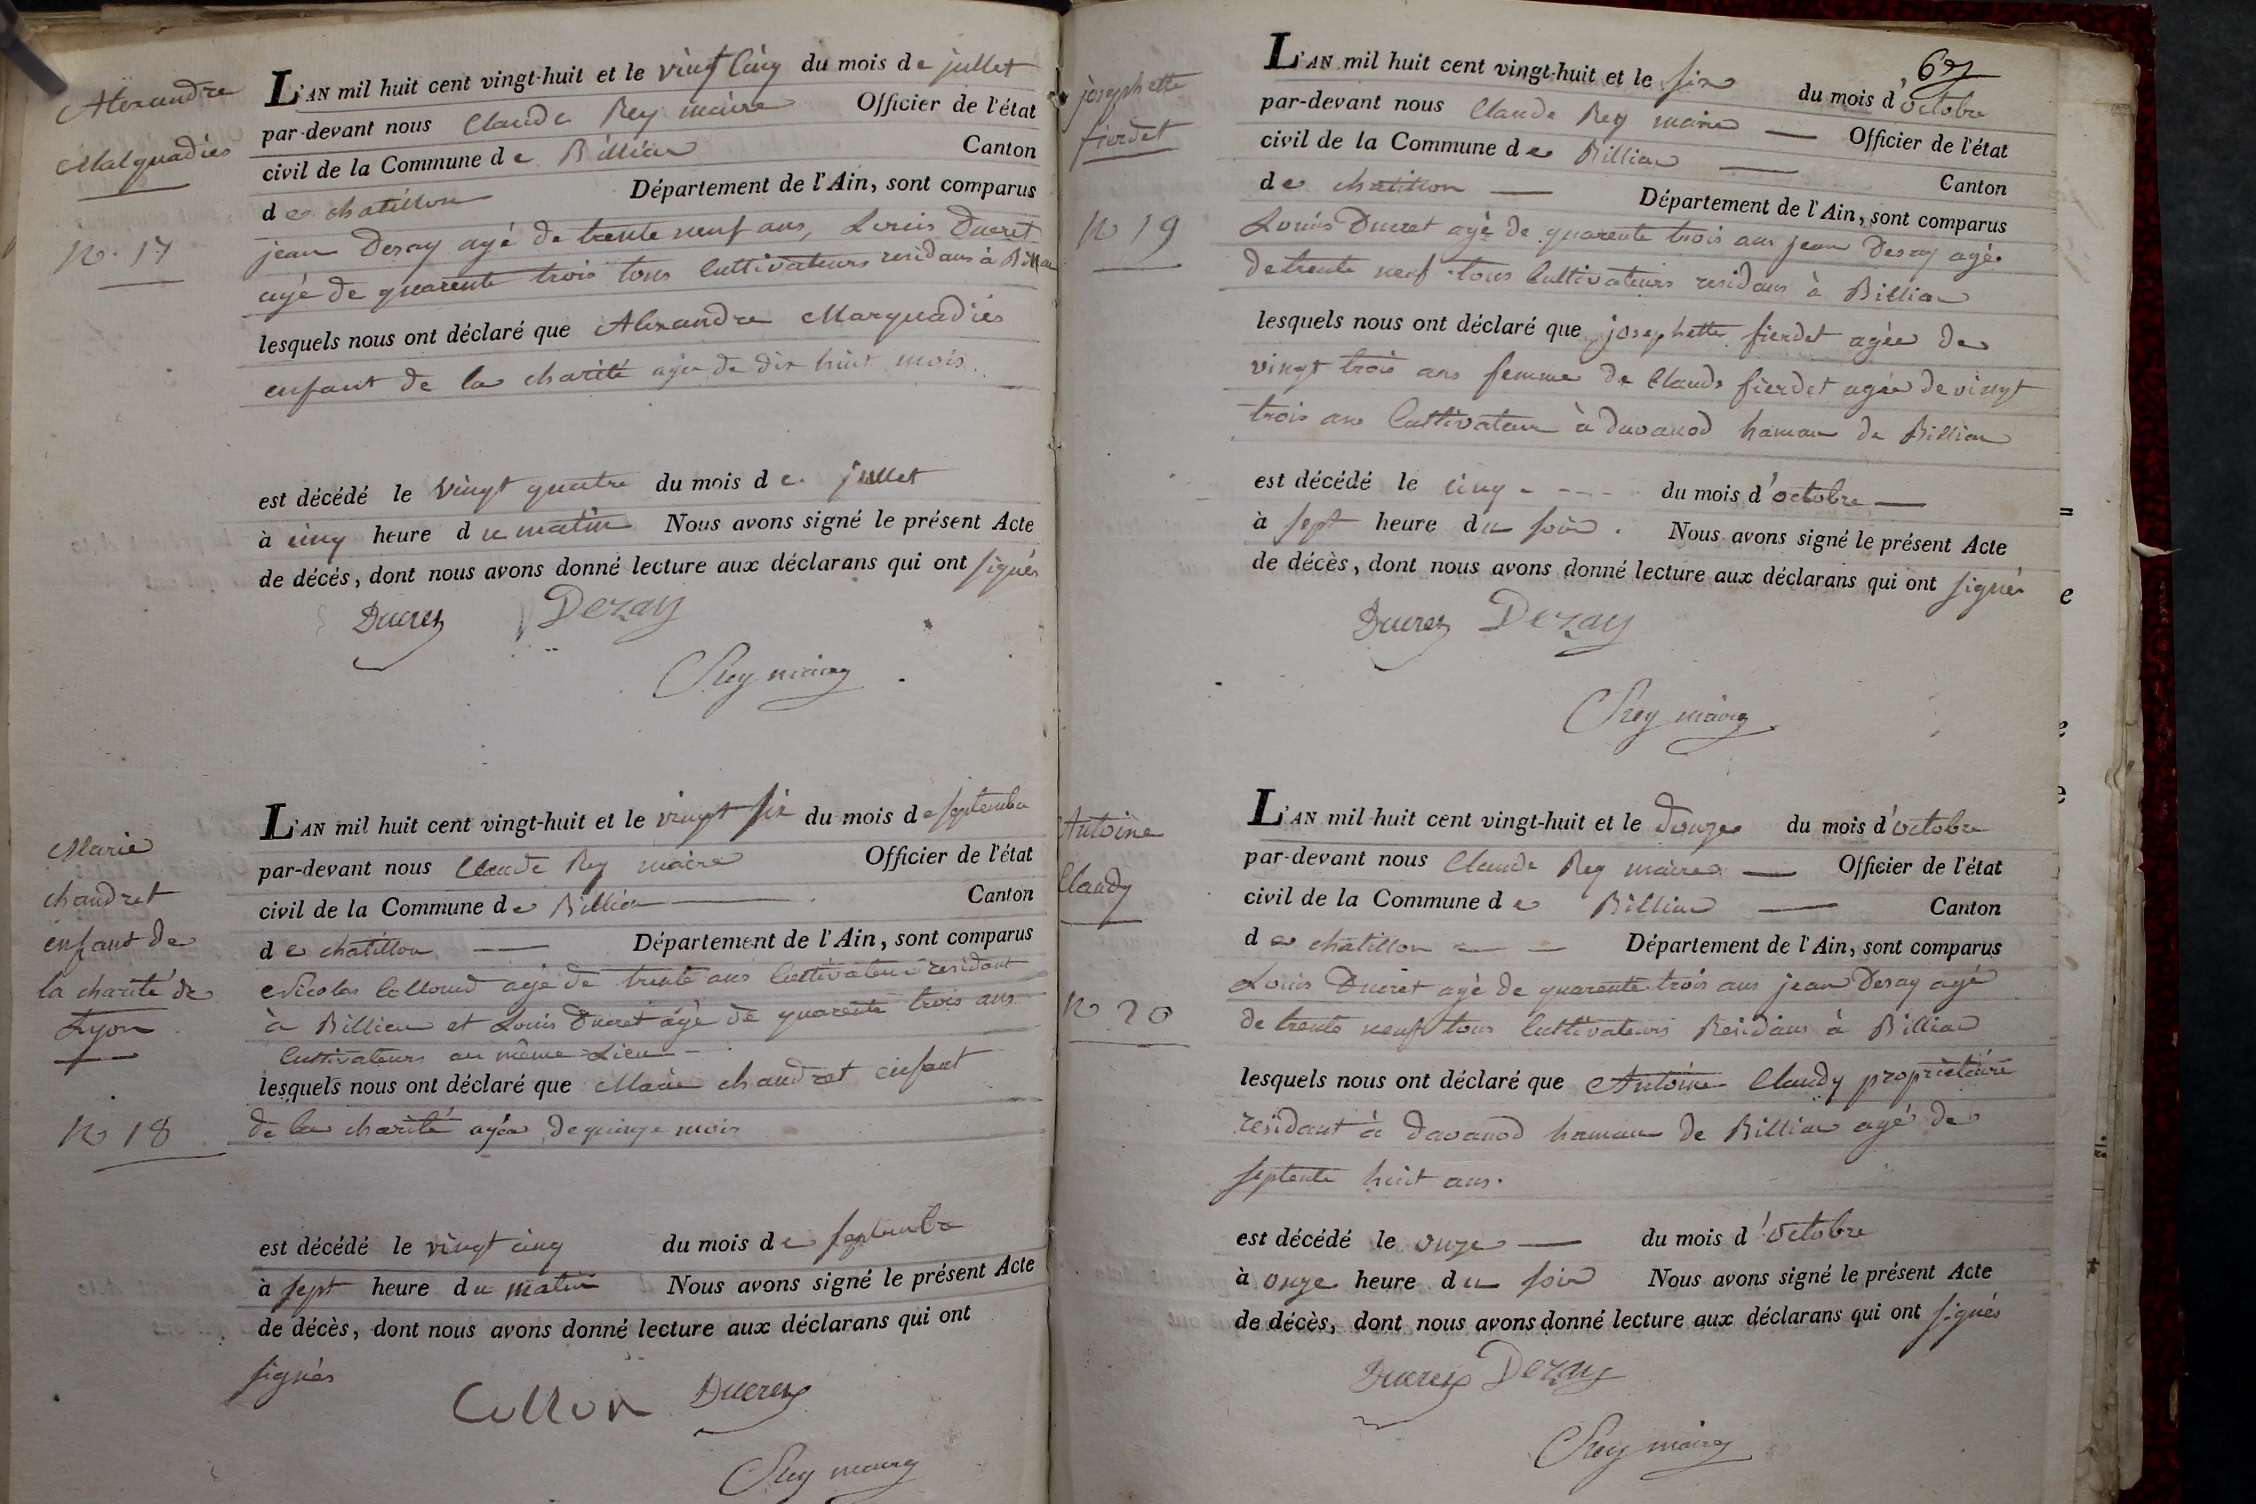 Alexandre
Malquadiés
No. 17
L'AN mil huit cent vingt-huit et le vingt Cinq du mois de juillet
par-devant nous Claude Rey maire Officier de l'état
civil de la Commune de Billiau Canton
de chatillon Département de l'Ain, sont comparus
jean Desay agé de trente neuf ans, Louis Ducret
agé de quarente trois tous Cultivateurs residans à Billiau
lesquels nous ont déclaré que Alexandre Marquadiés
enfant de la charité agée de dix huit mois
est décédé le vingt quatre du mois de juillet
à cinq heure du matin Nous avons signé le présent Acte
de décès, dont nous avons donné lecture aux déclarans qui ont signés
Ducret Dezay
Rey maire
Marie
chandret
enfant de
la charité de
Lyon
No 18
L'AN mil huit cent vingt-huit et le vingt six du mois de septembre
par-devant nous Claude Rey maire Officier de l'état
civil de la Commune de Billiau Canton
de chatillon Département de l'Ain, sont comparus
Nicolas Colloud agé de trente ans Cultivateur residant
à Billiau et Louis Ducret agé de quarente trois ans
Cultivateurs au même Lieu
lesquels nous ont déclaré que Marie chandret enfant
de la charité agée de quinze mois
est décédé le vingt cinq du mois de septembre
à sept heure du matin Nous avons signé le présent Acte
de décès, dont nous avons donné lecture aux déclarans qui ont
signés
Ducret
Rey maire
67
josephette
fierdet
No 19
L'AN mil huit cent vingt-huit et le six du mois d'octobre
par-devant nous Claude Rey maire Officier de l'état
civil de la Commune de Billiau Canton
de chatillon Département de l'Ain, sont comparus
Louis Ducret agé de quarente trois ans jean Desay agé
de trente neuf tous Cultivateurs residans à Billiau
lesquels nous ont déclaré que josephette fierdet agée de
vingt trois ans femme de Claude fierdet agée de vingt
trois ans Cultivateur à davanod hamau de Billiau
est décédé le cinq du mois d'octobre
à sept heure du soir. Nous avons signé le présent Acte
de décès, dont nous avons donné lecture aux déclarans qui ont signés
Ducret Dezay
Rey maire
Antoine
Claudy
No 20
L'AN mil huit cent vingt-huit et le douze du mois d'octobre
par-devant nous Claude Rey maire Officier de l'état
civil de la Commune de Billiau Canton
de chatillon Département de l'Ain, sont comparus
Louis Ducret agé de quarente trois ans jean Desay agé
de trente neuf tous Cultivateurs Residans à Billiau
lesquels nous ont déclaré que Antoine Claudy proprietaire
residant à davanod hamau de Billiau agé de
septente huit ans.
est décédé le onze du mois d'octobre
à onze heure du soir Nous avons signé le présent Acte
de décès, dont nous avons donné lecture aux déclarans qui ont signés
Ducret Dezay
Rey maire